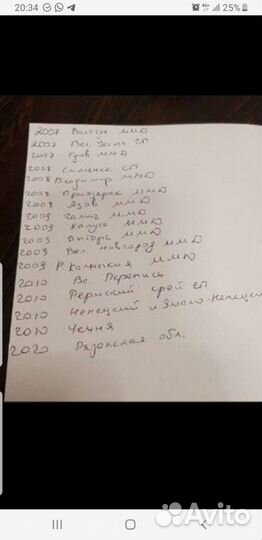 20:34
25%
2007 Вологда ММД
2007 Вел. Устюг СП
2007 Гдов ММД
2008 Смоленск СП
2008 Владимир ММД
2008 Приозерск ММД
2008 Азов ММД
2009 Галич ММД
2009 Калуга ММД
2009 Выборг ММД
2009 Вел. Новгород ММД
2009 Р. Калмыкия ММД
2010 Вс. Перепись
2010 Пермский край СП
2010 Ненецкий и Ямало-Ненецкий
2010 Чечня
2020 Рязанская обл.
Avito